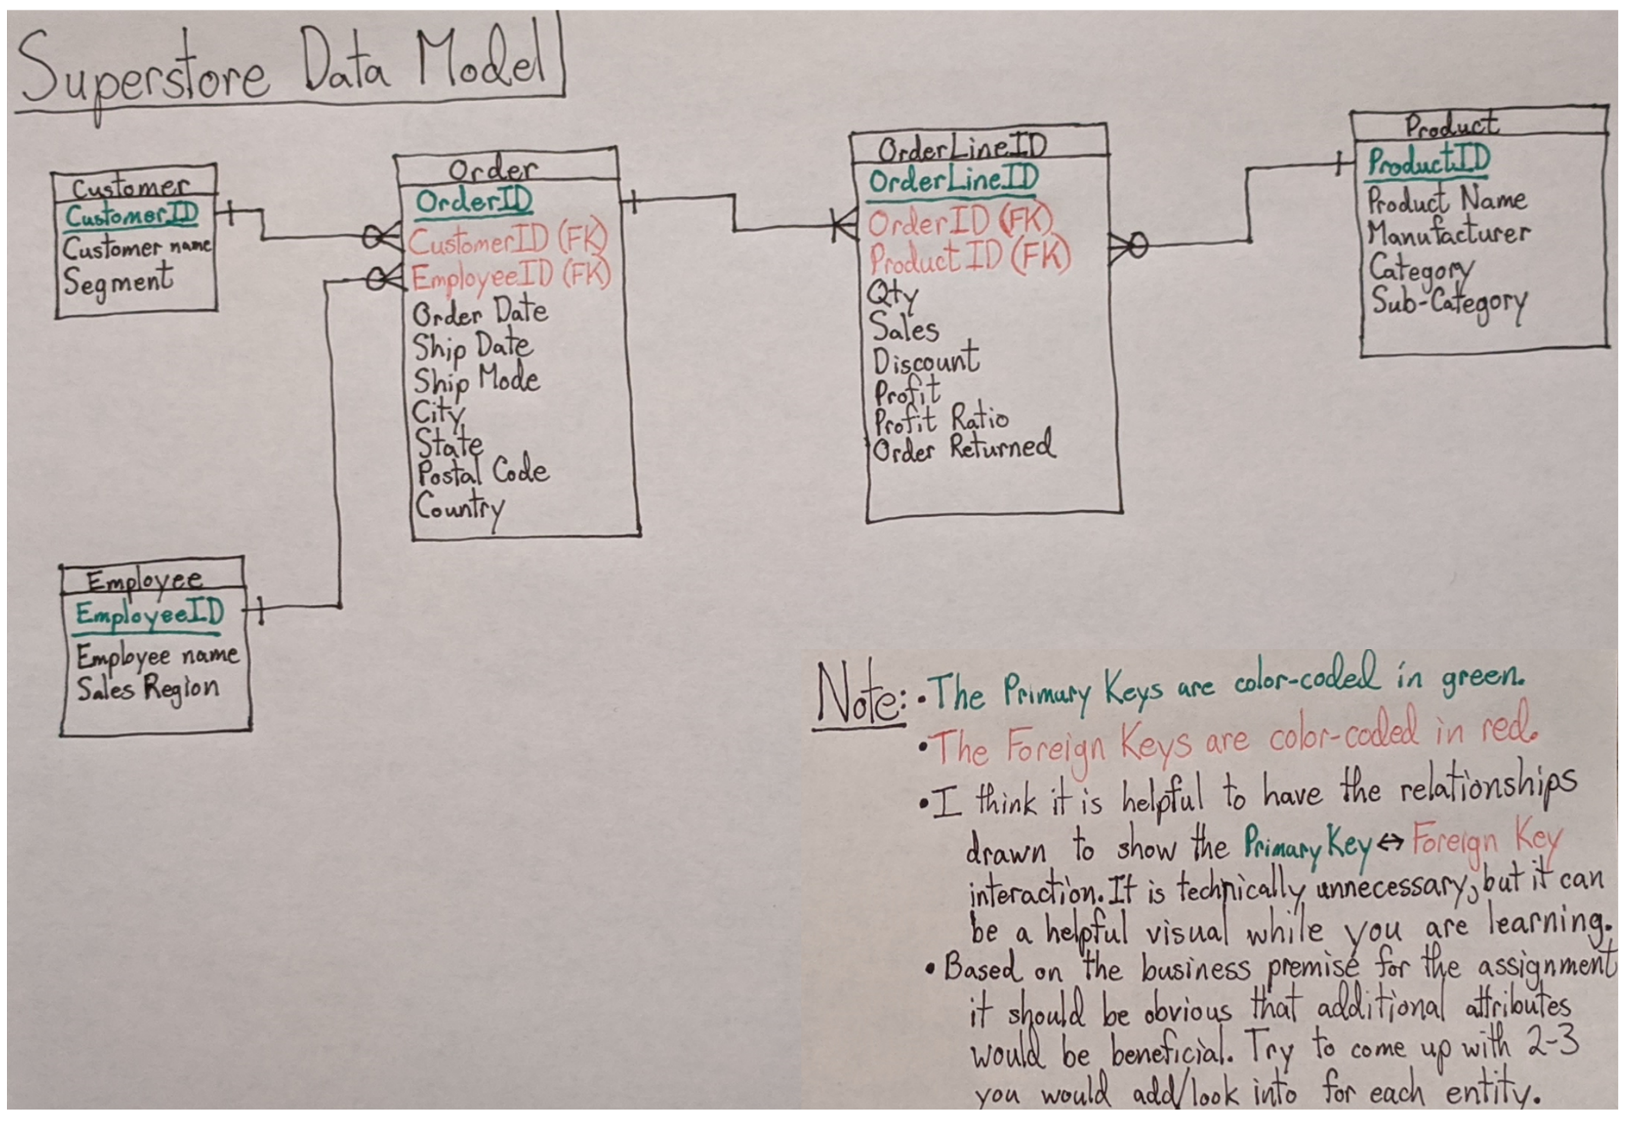 Superstore Data Model
Customer
CustomerID
Customer name
Segment
Order
OrderID
CustomerID (FK)
EmployeeID (FK)
Order Date
Ship Date
Ship Mode
City
State
Postal Code
Country
OrderLineID
OrderLineID
OrderID (FK)
ProductID (FK)
Qty
Sales
Discount
Profit
Profit Ratio
Order Returned
Product
ProductID
Product Name
Manufacturer
Category
Sub-Category
Employee
EmployeeID
Employee name
Sales Region
Note: • The Primary Keys are color-coded in green.
• The Foreign Keys are color-coded in red.
• I think it is helpful to have the relationships
drawn to show the Primary Key ↔ Foreign Key
interaction. It is technically unnecessary, but it can
be a helpful visual while you are learning.
• Based on the business premise for the assignment
it should be obvious that additional attributes
would be beneficial. Try to come up with 2-3
you would add/look into for each entity.